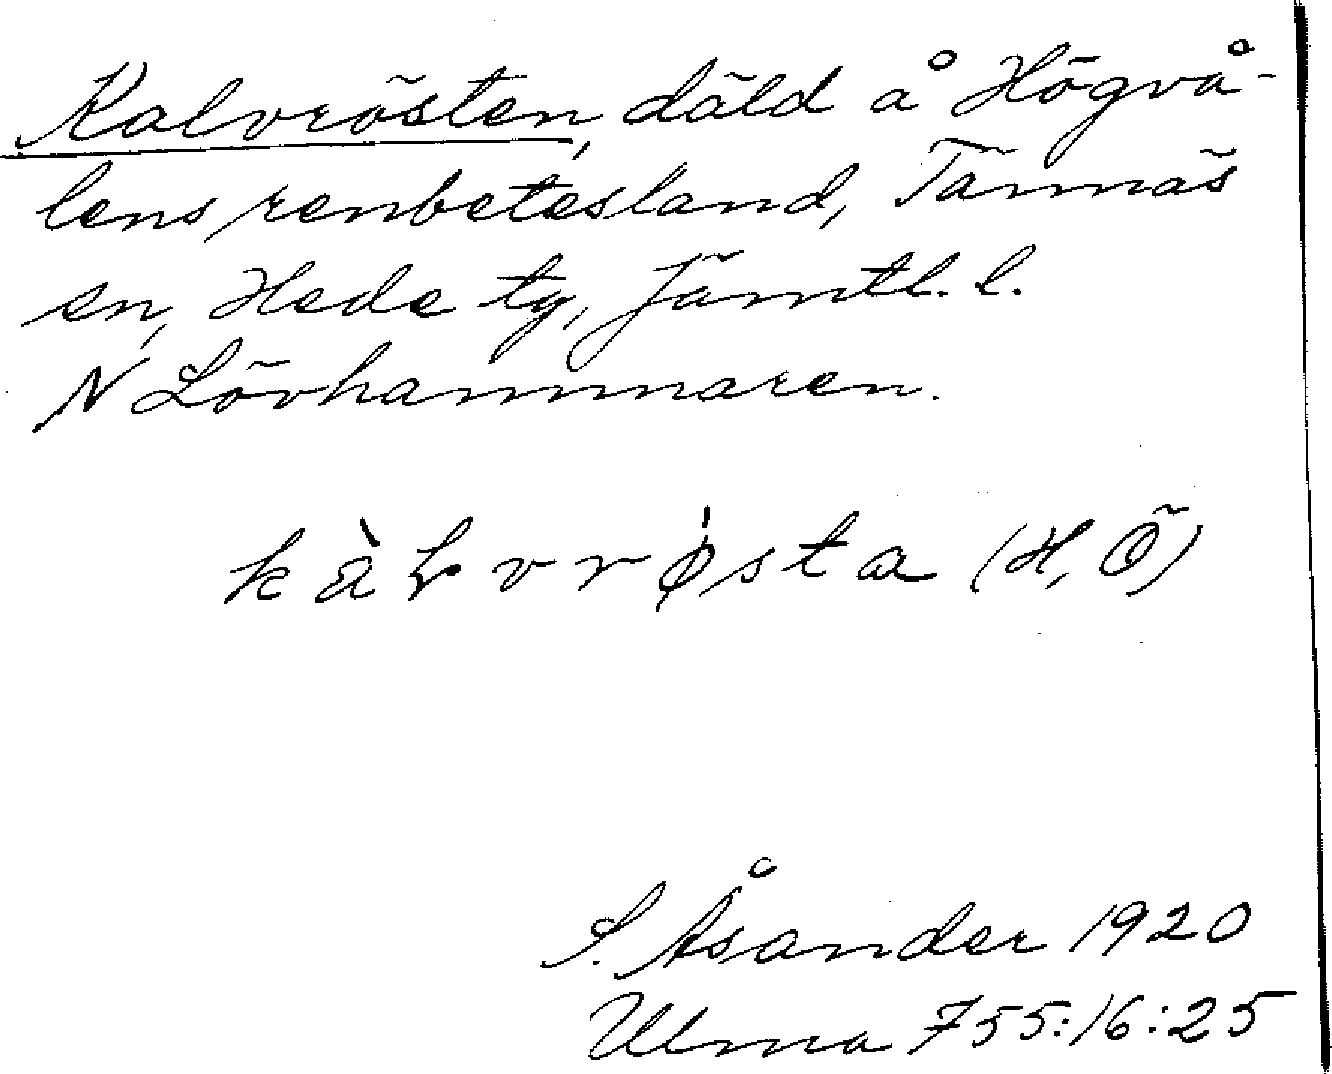 Kalvrösten, däld å Högvå-
lens renbetesland, Tännäs
sn, Hede tg, Jämtl. l.
N Lövhammaren.
kàɫvrøsta (H, Ö)
S. Åsander 1920
Ulma 755:16:25